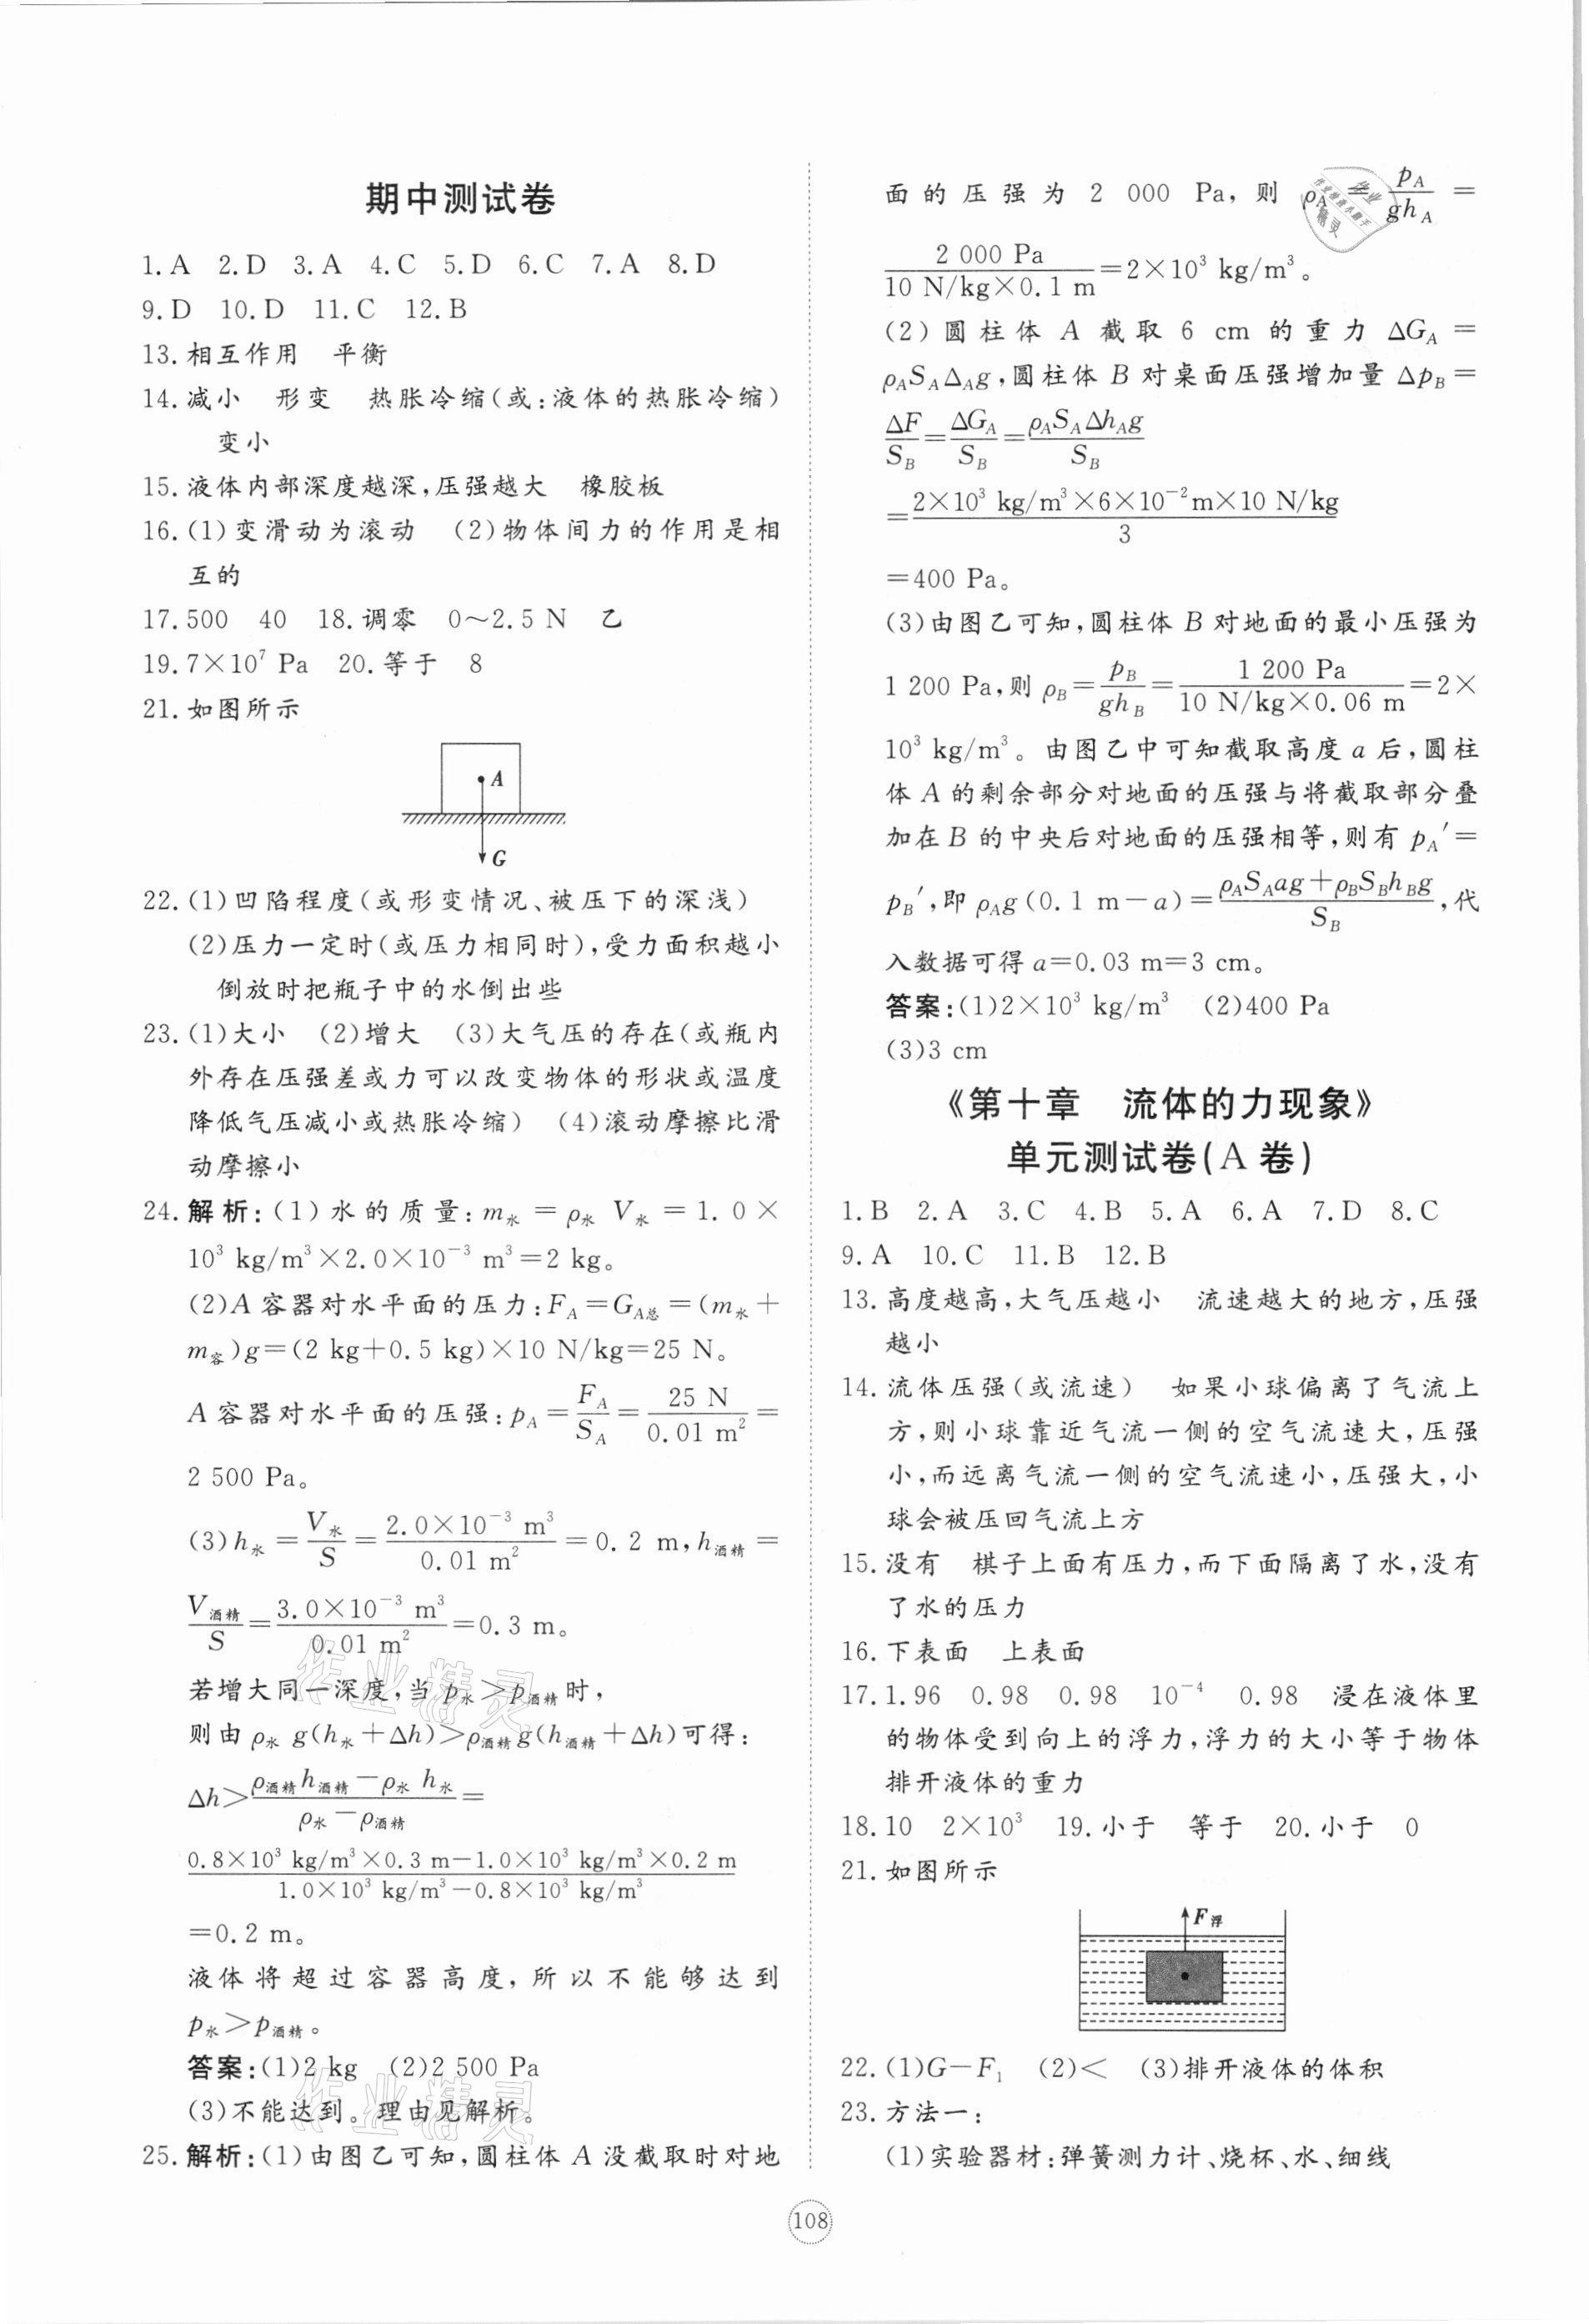 期中测试卷
1.A 2.D 3.A 4.C 5.D 6.C 7.A 8.D
9.D 10.D 11.C 12.B
13.相互作用 平衡
14.减小 形变 热胀冷缩(或:液体的热胀冷缩)
变小
15.液体内部深度越深,压强越大 橡胶板
16.(1)变滑动为滚动 (2)物体间力的作用是相
互的
17.500 40 18.调零 0～2.5 N 乙
19.7×10⁷ Pa 20.等于 8
21.如图所示
A
G
22.(1)凹陷程度(或形变情况、被压下的深浅)
(2)压力一定时(或压力相同时),受力面积越小
倒放时把瓶子中的水倒出些
23.(1)大小 (2)增大 (3)大气压的存在(或瓶内
外存在压强差或力可以改变物体的形状或温度
降低气压减小或热胀冷缩) (4)滚动摩擦比滑
动摩擦小
24.解析:(1)水的质量:m水=ρ水 V水=1.0×
10³ kg/m³×2.0×10⁻³ m³=2 kg。
(2)A容器对水平面的压力:F_A=G_A总=(m水+
m容)g=(2 kg+0.5 kg)×10 N/kg=25 N。
A容器对水平面的压强:p_A=F_A/S_A=25 N/0.01 m²=
2 500 Pa。
(3)h水=V水/S=2.0×10⁻³ m³/0.01 m²=0.2 m,h酒精=
V酒精/S=3.0×10⁻³ m³/0.01 m²=0.3 m。
若增大同一深度,当p水>p酒精时,
则由ρ水 g(h水+Δh)>ρ酒精g(h酒精+Δh)可得:
Δh>(ρ酒精h酒精-ρ水 h水)/(ρ水-ρ酒精)=
(0.8×10³ kg/m³×0.3 m-1.0×10³ kg/m³×0.2 m)/(1.0×10³ kg/m³-0.8×10³ kg/m³)
=0.2 m。
液体将超过容器高度,所以不能够达到
p水>p酒精。
答案:(1)2 kg (2)2 500 Pa
(3)不能达到。理由见解析。
25.解析:(1)由图乙可知,圆柱体A没截取时对地
面的压强为2 000 Pa,则ρ_A=p_A/gh_A=
2 000 Pa/(10 N/kg×0.1 m)=2×10³ kg/m³。
(2)圆柱体A截取6 cm的重力ΔG_A=
ρ_A S_A Δ_A g,圆柱体B对桌面压强增加量Δp_B=
ΔF/S_B=ΔG_A/S_B=ρ_A S_A Δh_A g/S_B
=2×10³ kg/m³×6×10⁻²m×10 N/kg/3
=400 Pa。
(3)由图乙可知,圆柱体B对地面的最小压强为
1 200 Pa,则ρ_B=p_B/gh_B=1 200 Pa/(10 N/kg×0.06 m)=2×
10³ kg/m³。由图乙中可知截取高度a后,圆柱
体A的剩余部分对地面的压强与将截取部分叠
加在B的中央后对地面的压强相等,则有p_A′=
p_B′,即ρ_A g(0.1 m-a)=(ρ_A S_A ag+ρ_B S_B h_B g)/S_B,代
入数据可得a=0.03 m=3 cm。
答案:(1)2×10³ kg/m³ (2)400 Pa
(3)3 cm
《第十章 流体的力现象》
单元测试卷(A卷)
1.B 2.A 3.C 4.B 5.A 6.A 7.D 8.C
9.A 10.C 11.B 12.B
13.高度越高,大气压越小 流速越大的地方,压强
越小
14.流体压强(或流速) 如果小球偏离了气流上
方,则小球靠近气流一侧的空气流速大,压强
小,而远离气流一侧的空气流速小,压强大,小
球会被压回气流上方
15.没有 棋子上面有压力,而下面隔离了水,没有
了水的压力
16.下表面 上表面
17.1.96 0.98 0.98 10⁻⁴ 0.98 浸在液体里
的物体受到向上的浮力,浮力的大小等于物体
排开液体的重力
18.10 2×10³ 19.小于 等于 20.小于 0
21.如图所示
F浮
22.(1)G-F₁ (2)< (3)排开液体的体积
23.方法一:
(1)实验器材:弹簧测力计、烧杯、水、细线
108
作业精灵
作业精灵